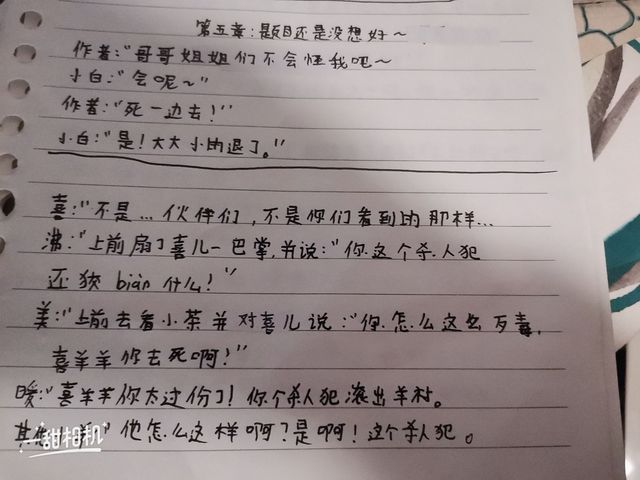 第五章:题目还是没想好~
作者:"哥哥姐姐们不会怪我吧~
小白:"会呢~"
作者:"死一边去!"
小白:"是!大大小的退了。"
喜:"不是...伙伴们,不是你们看到的那样...
沸:"上前扇了喜儿一巴掌,并说:"你这个杀人犯
还狡biàn什么!"
美:"上前去看小茶并对喜儿说:"你怎么这么歹毒,
喜羊羊你去死啊!"
暖:"喜羊羊你太过份了!你个杀人犯滚出羊村。
其 他怎么这样啊?是啊!这个杀人犯。
甜相机